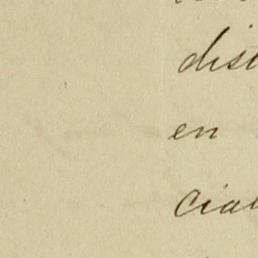 dist
en
cial